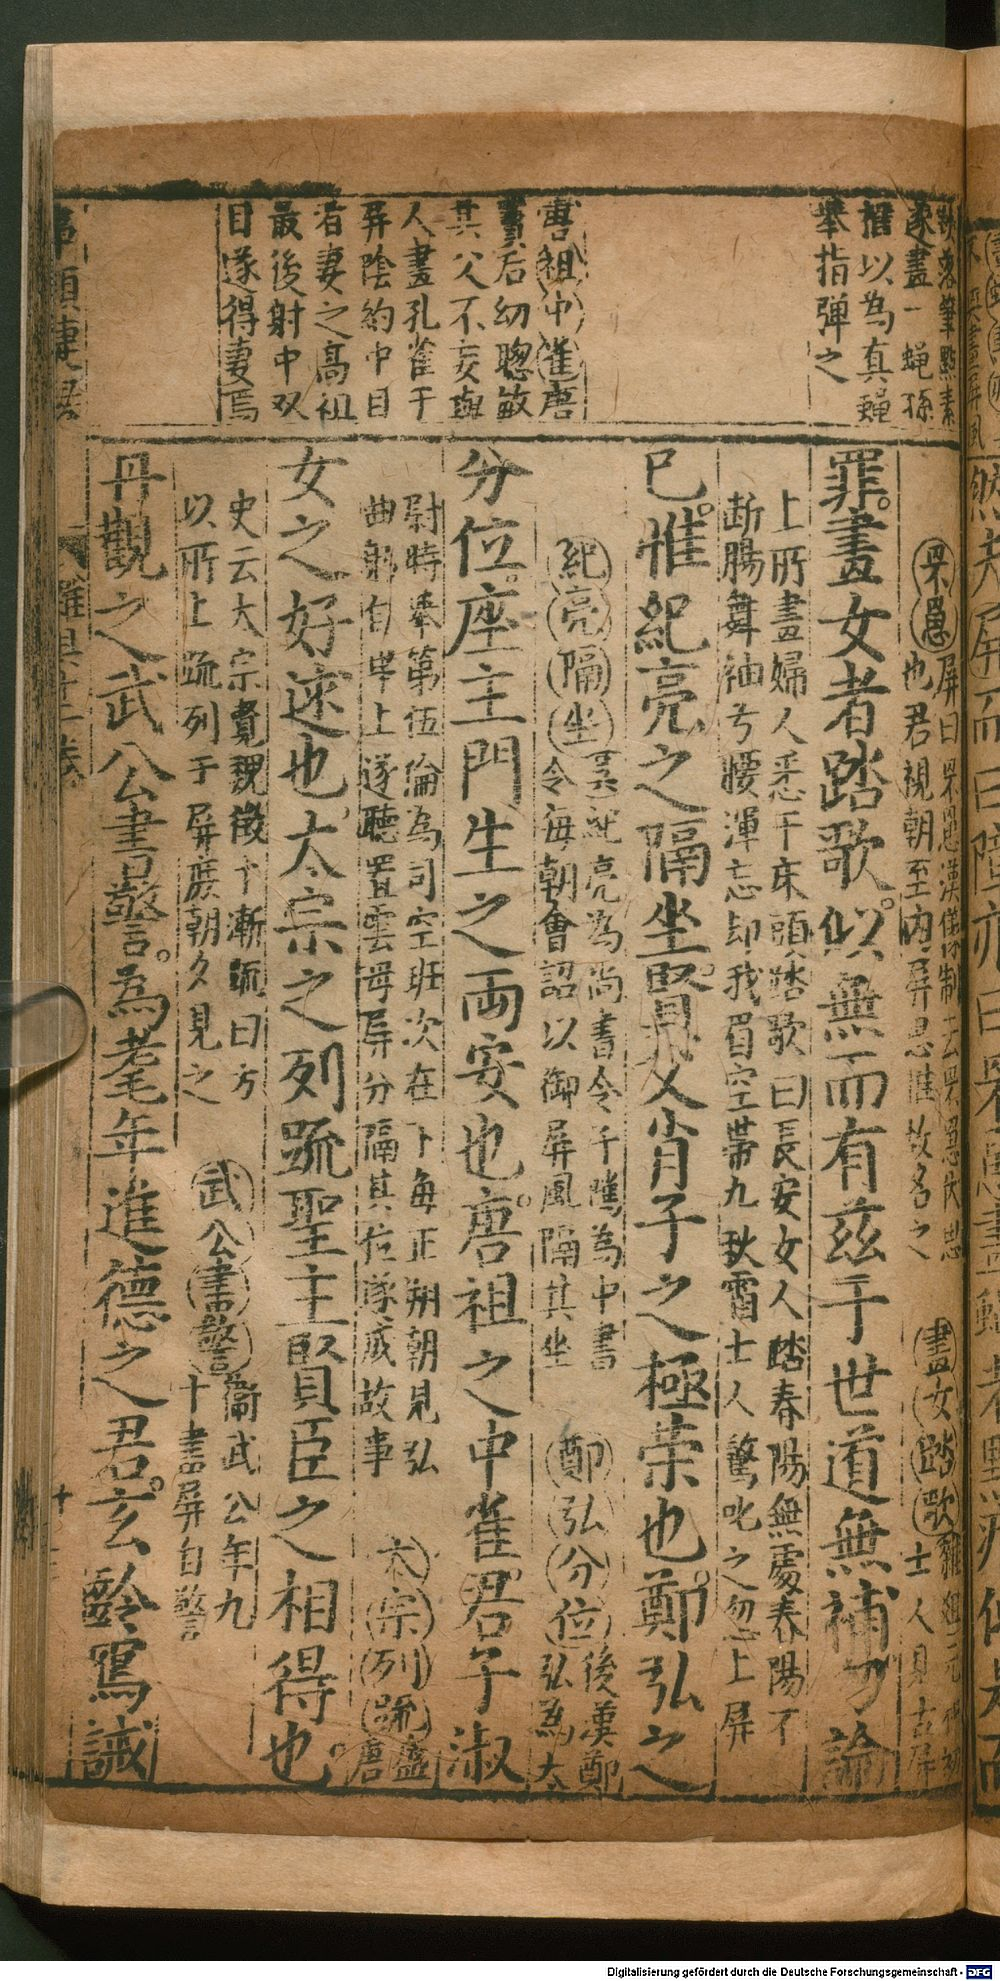 誤落筆點素
遂畫一蝇孫
權以為真蝇
舉指彈之
唐祖中雀唐
竇后幼聰敏
其父不妄與
人畫孔雀于
屏陰約中目
者妻之高祖
最後射中双
目遂得妻焉
罘罳屏曰罘罳漢儀制云罘罳伏思
也君視朝至内屏思惟故名之
畫女踏歌雜俎元和初
士人見古屏
罪畫女者踏歌似無而有兹于世道無補勿論
上所畫婦人悉于床頭踏歌曰長安女人踏春陽無處春陽不
断腸舞袖弓腰渾忘却我眉空帯九秋霜士人驚叱之忽上屏
已惟紀亮之隔坐賢父肖子之極荣也鄭弘之
紀亮隔坐吴紀亮為尚書令子隲為中書
令每朝會詔以御屏風隔其坐
鄭弘分位後漢鄭
弘為太
分位座主門生之両安也唐祖之中雀君子淑
尉時舉第伍倫為司空班次在下每正朔朝見弘
曲躬自卑上遂聽置雲母屏分隔其位遂成故事
太宗列疏盛
唐
女之好逑也太宗之列疏聖主賢臣之相得也
史云太宗覽魏徵十漸疏曰方
以所上疏列于屏庶朝夕見之
武公書警衛武公年九
十書屏自警
丹觀之武公書警為耄年進德之君玄齡寫誡
事類捷録
雜具廿二卷
Digitalisierung gefördert durch die Deutsche Forschungsgemeinschaft - DFG